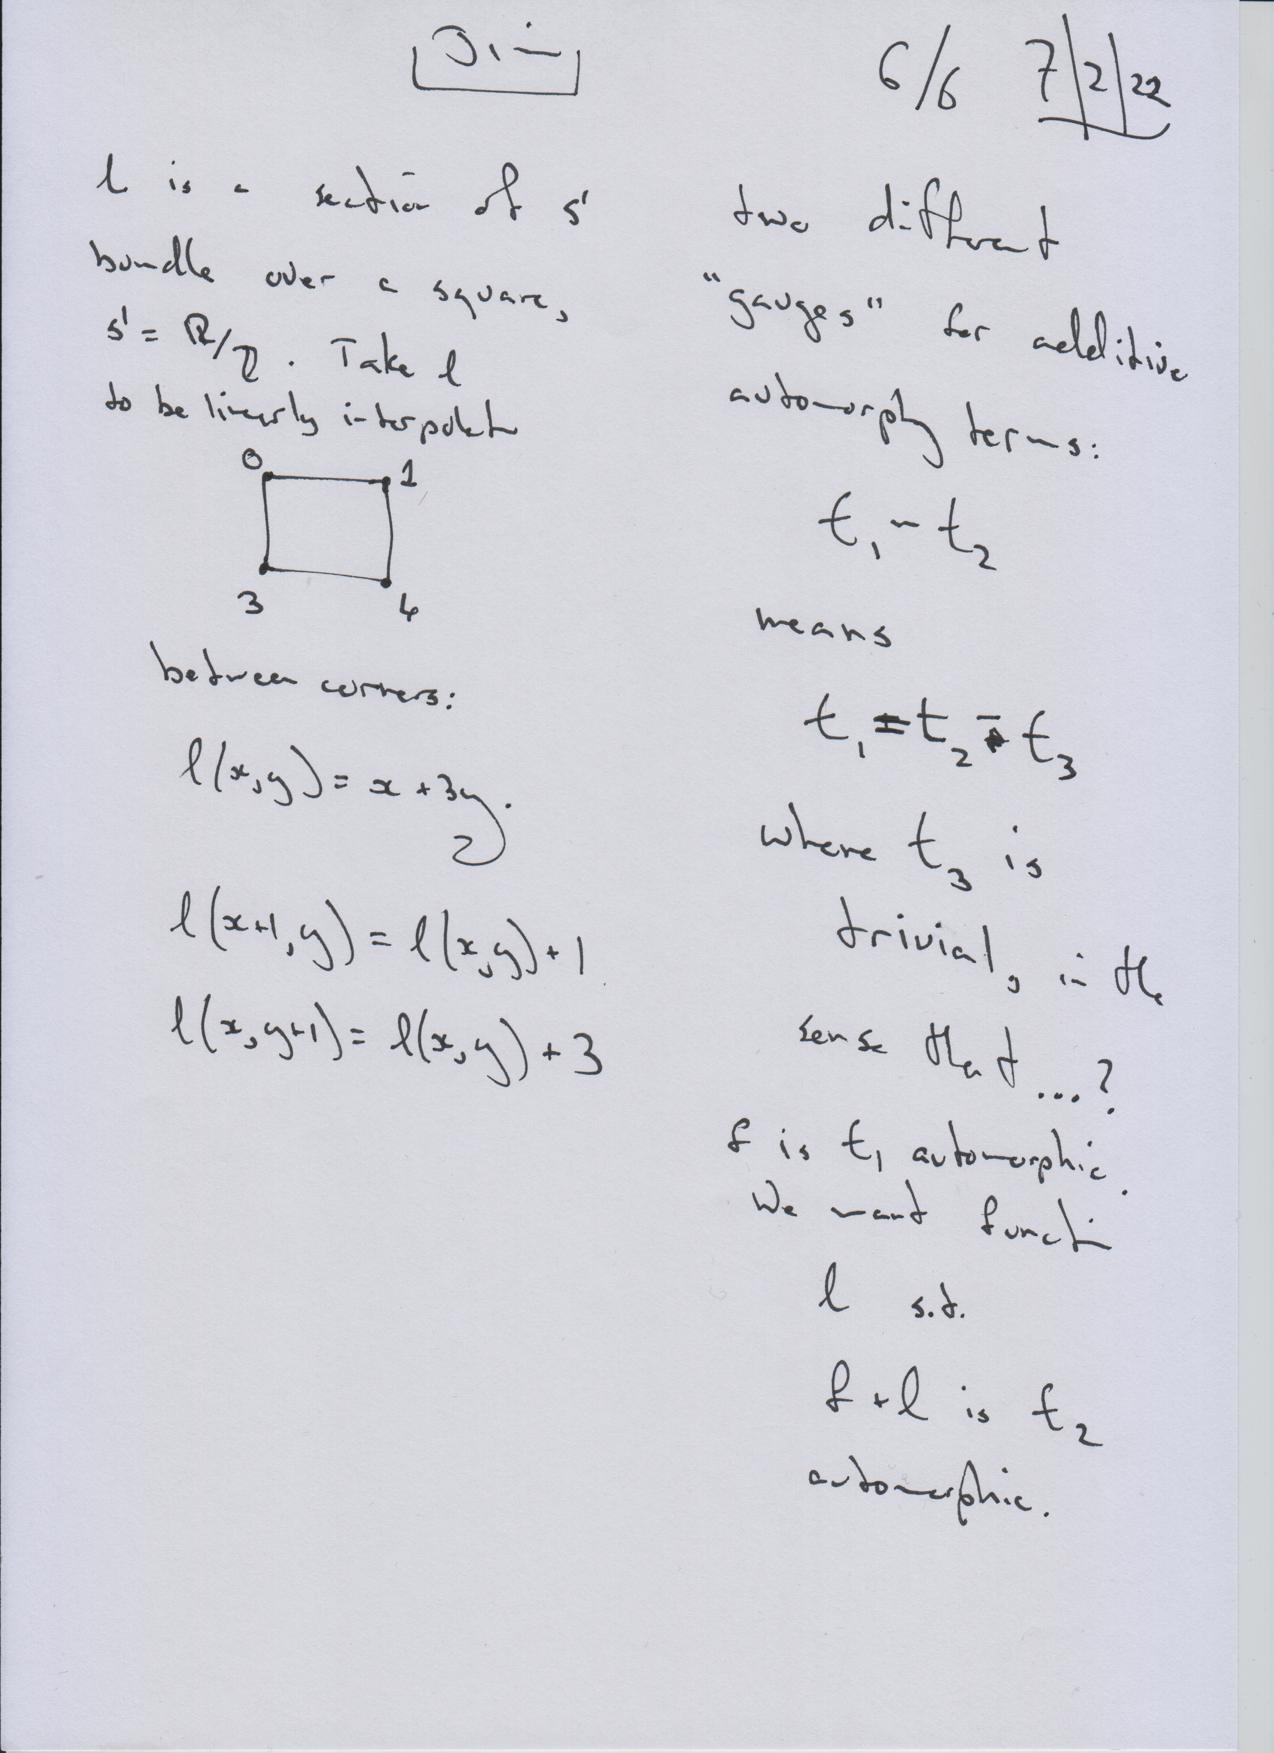 Jim
6/6 7/2/22
l is a section of S¹
bundle over a square,
S¹ = ℝ/ℤ. Take l
to be linearly interpolate
0 1
3 4
between corners:
l(x,y) = x + 3y.
l(x+1,y) = l(x,y) + 1
l(x,y+1) = l(x,y) + 3
two different
"gauges" for additive
automorphy terms:
t₁ ~ t₂
means
t₁ = t₂ + t₃
where t₃ is
trivial, in the
sense that ...?
f is t₁ automorphic.
We want function
l s.t.
f + l is t₂
automorphic.